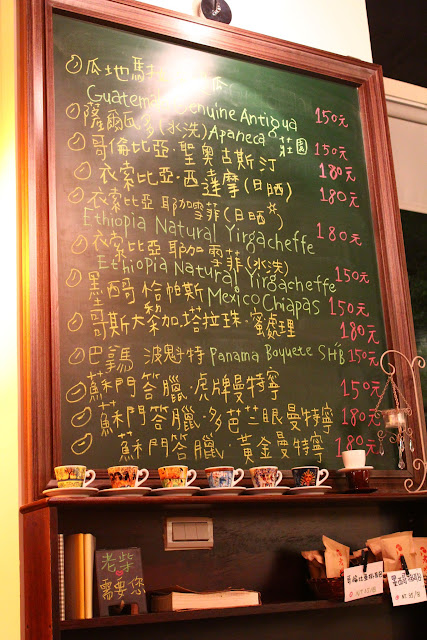 瓜地馬拉
Guatemala Genuine Antigua 150元
薩爾瓦多(水洗)Apaneca 莊園 150元
哥倫比亞·聖奧古斯汀 180元
衣索比亞·西達摩(日晒) 180元
衣索比亞 耶加雪菲(日晒)
Ethiopia Natural Yirgacheffe 180元
衣索比亞 耶加雪菲(水洗)
Ethiopia Natural Yirgacheffe 150元
墨西哥 恰帕斯 Mexico Chiapas 150元
哥斯大黎加·塔拉珠·蜜處理 180元
巴拿馬 波魁特 Panama Boquete SHB 150元
蘇門答臘·虎牌曼特寧 150元
蘇門答臘·多芭兰眼曼特寧 180元
蘇門答臘·黃金曼特寧 180元
老柴
需要您